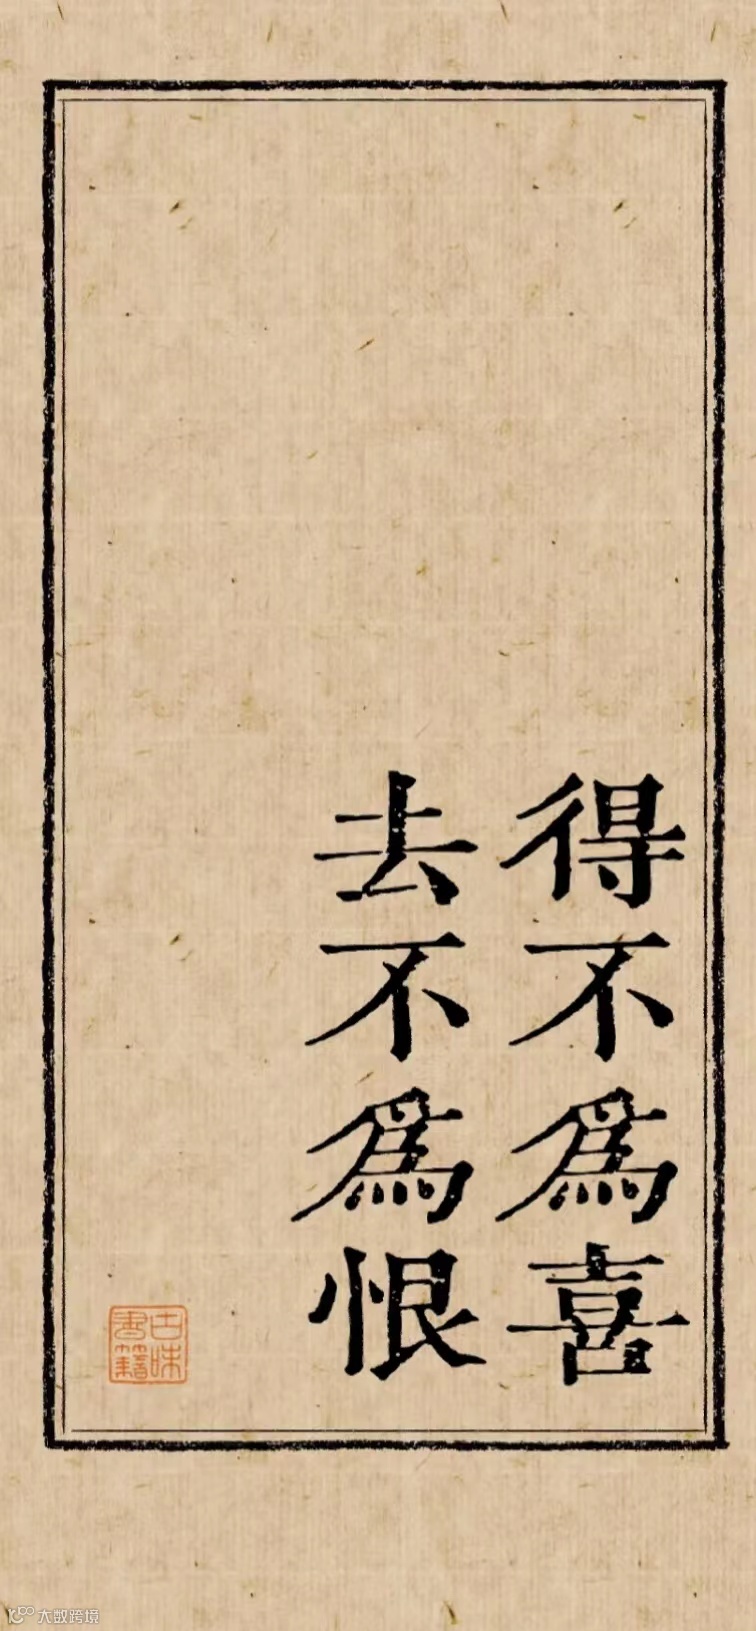 得不為喜
去不為恨
古味
書籍
大数跨境